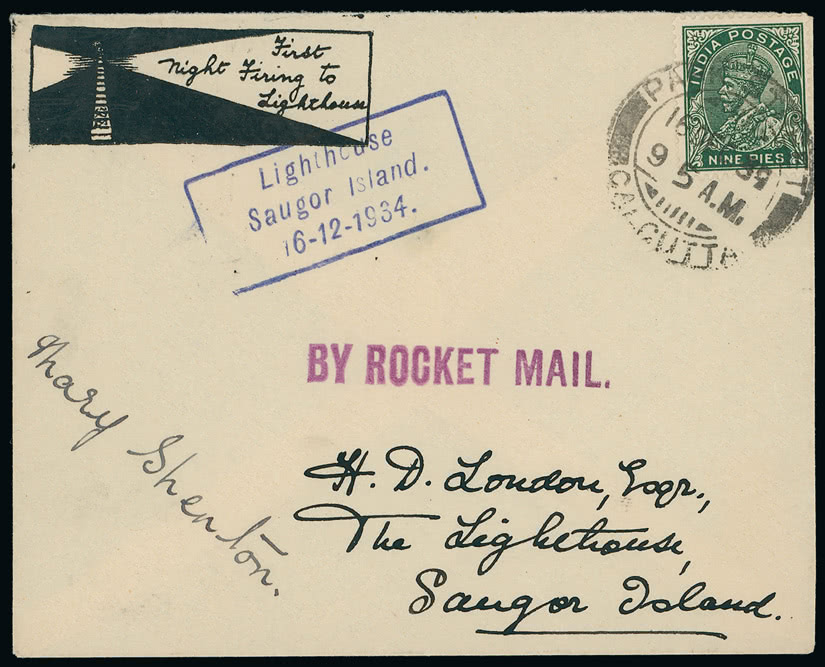 First
Night Firing to
Lighthouse
INDIA POSTAGE
NINE PIES
16
9 5 A.M.
CALCUTTA
Lighthouse
Saugor Island.
16-12-1934.
BY ROCKET MAIL.
Mary Shenton.
H. D. London, Esqr.,
The Lighthouse,
Saugor Island.